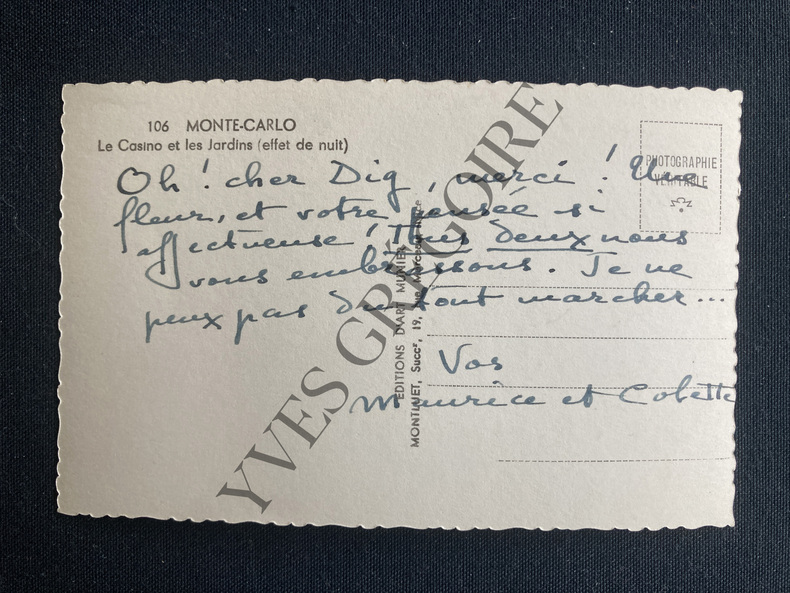 106 MONTE-CARLO
Le Casino et les Jardins (effet de nuit)
PHOTOGRAPHIE
VERITABLE
Oh ! cher Dig, merci ! Une
fleur, et votre pensée si
affectueuse ! Tous deux nous
vous embrassons. Je ne
peux pas du tout marcher...
Vos
Maurice et Colette
EDITIONS D'ART MUNIER
MONTLUET, Succr, 19,
YVES GRÉGOIRE